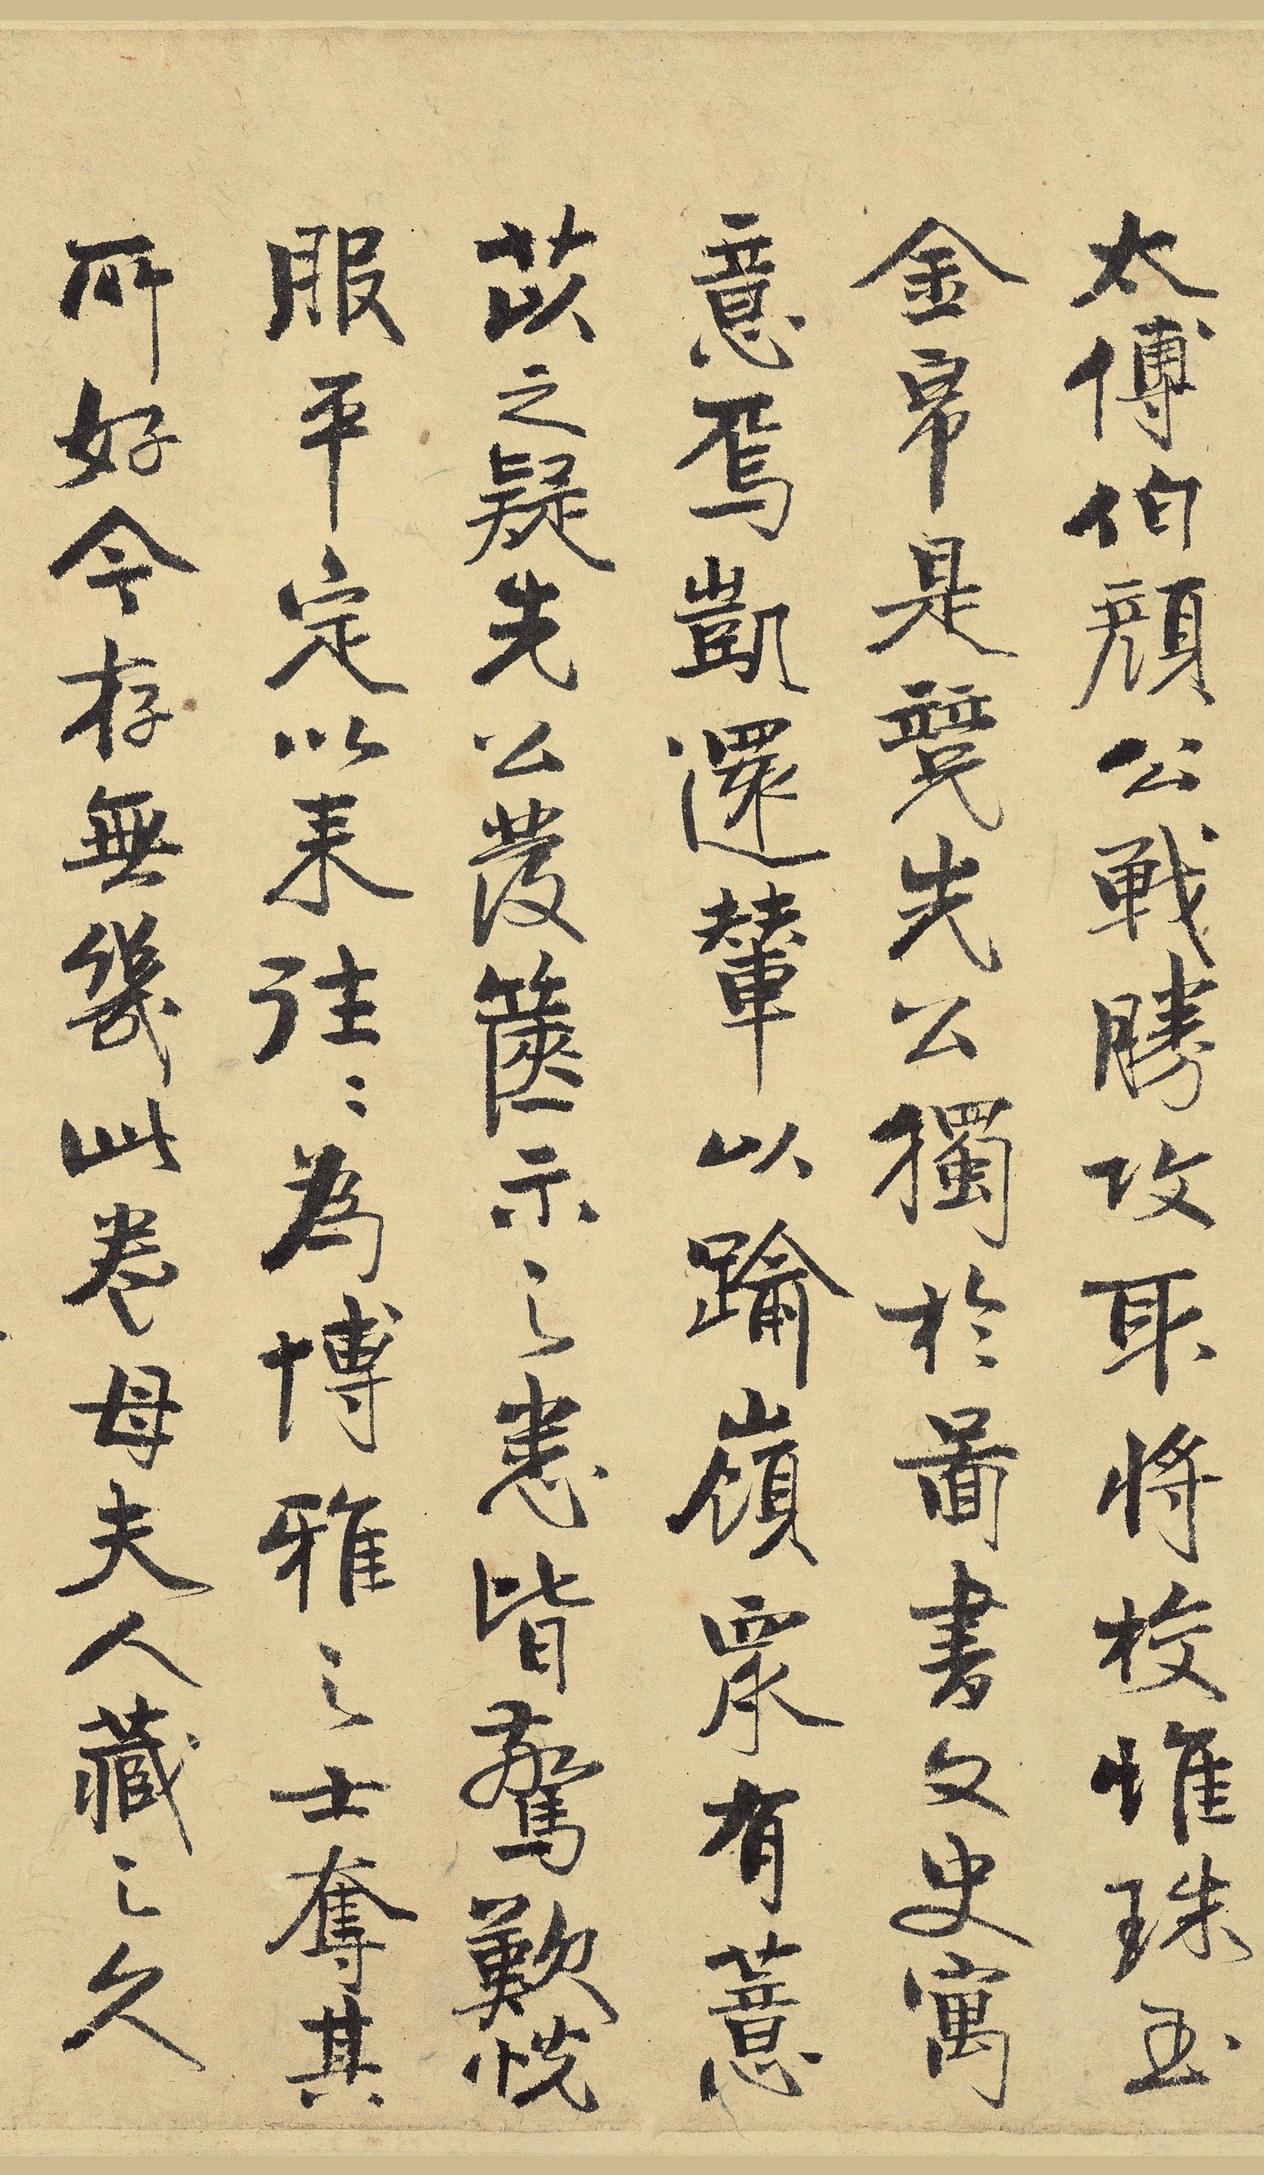 太傅伯顔公戰勝攻取將校惟珠玉
金帛是競先公獨於圖書文史寓
意焉凱還輦以踰嶺眾有薏
苡之疑先公發篋示之悉皆驚歎悅
服平定以來往〻為博雅之士奪其
所好今存無幾此卷母夫人藏之久